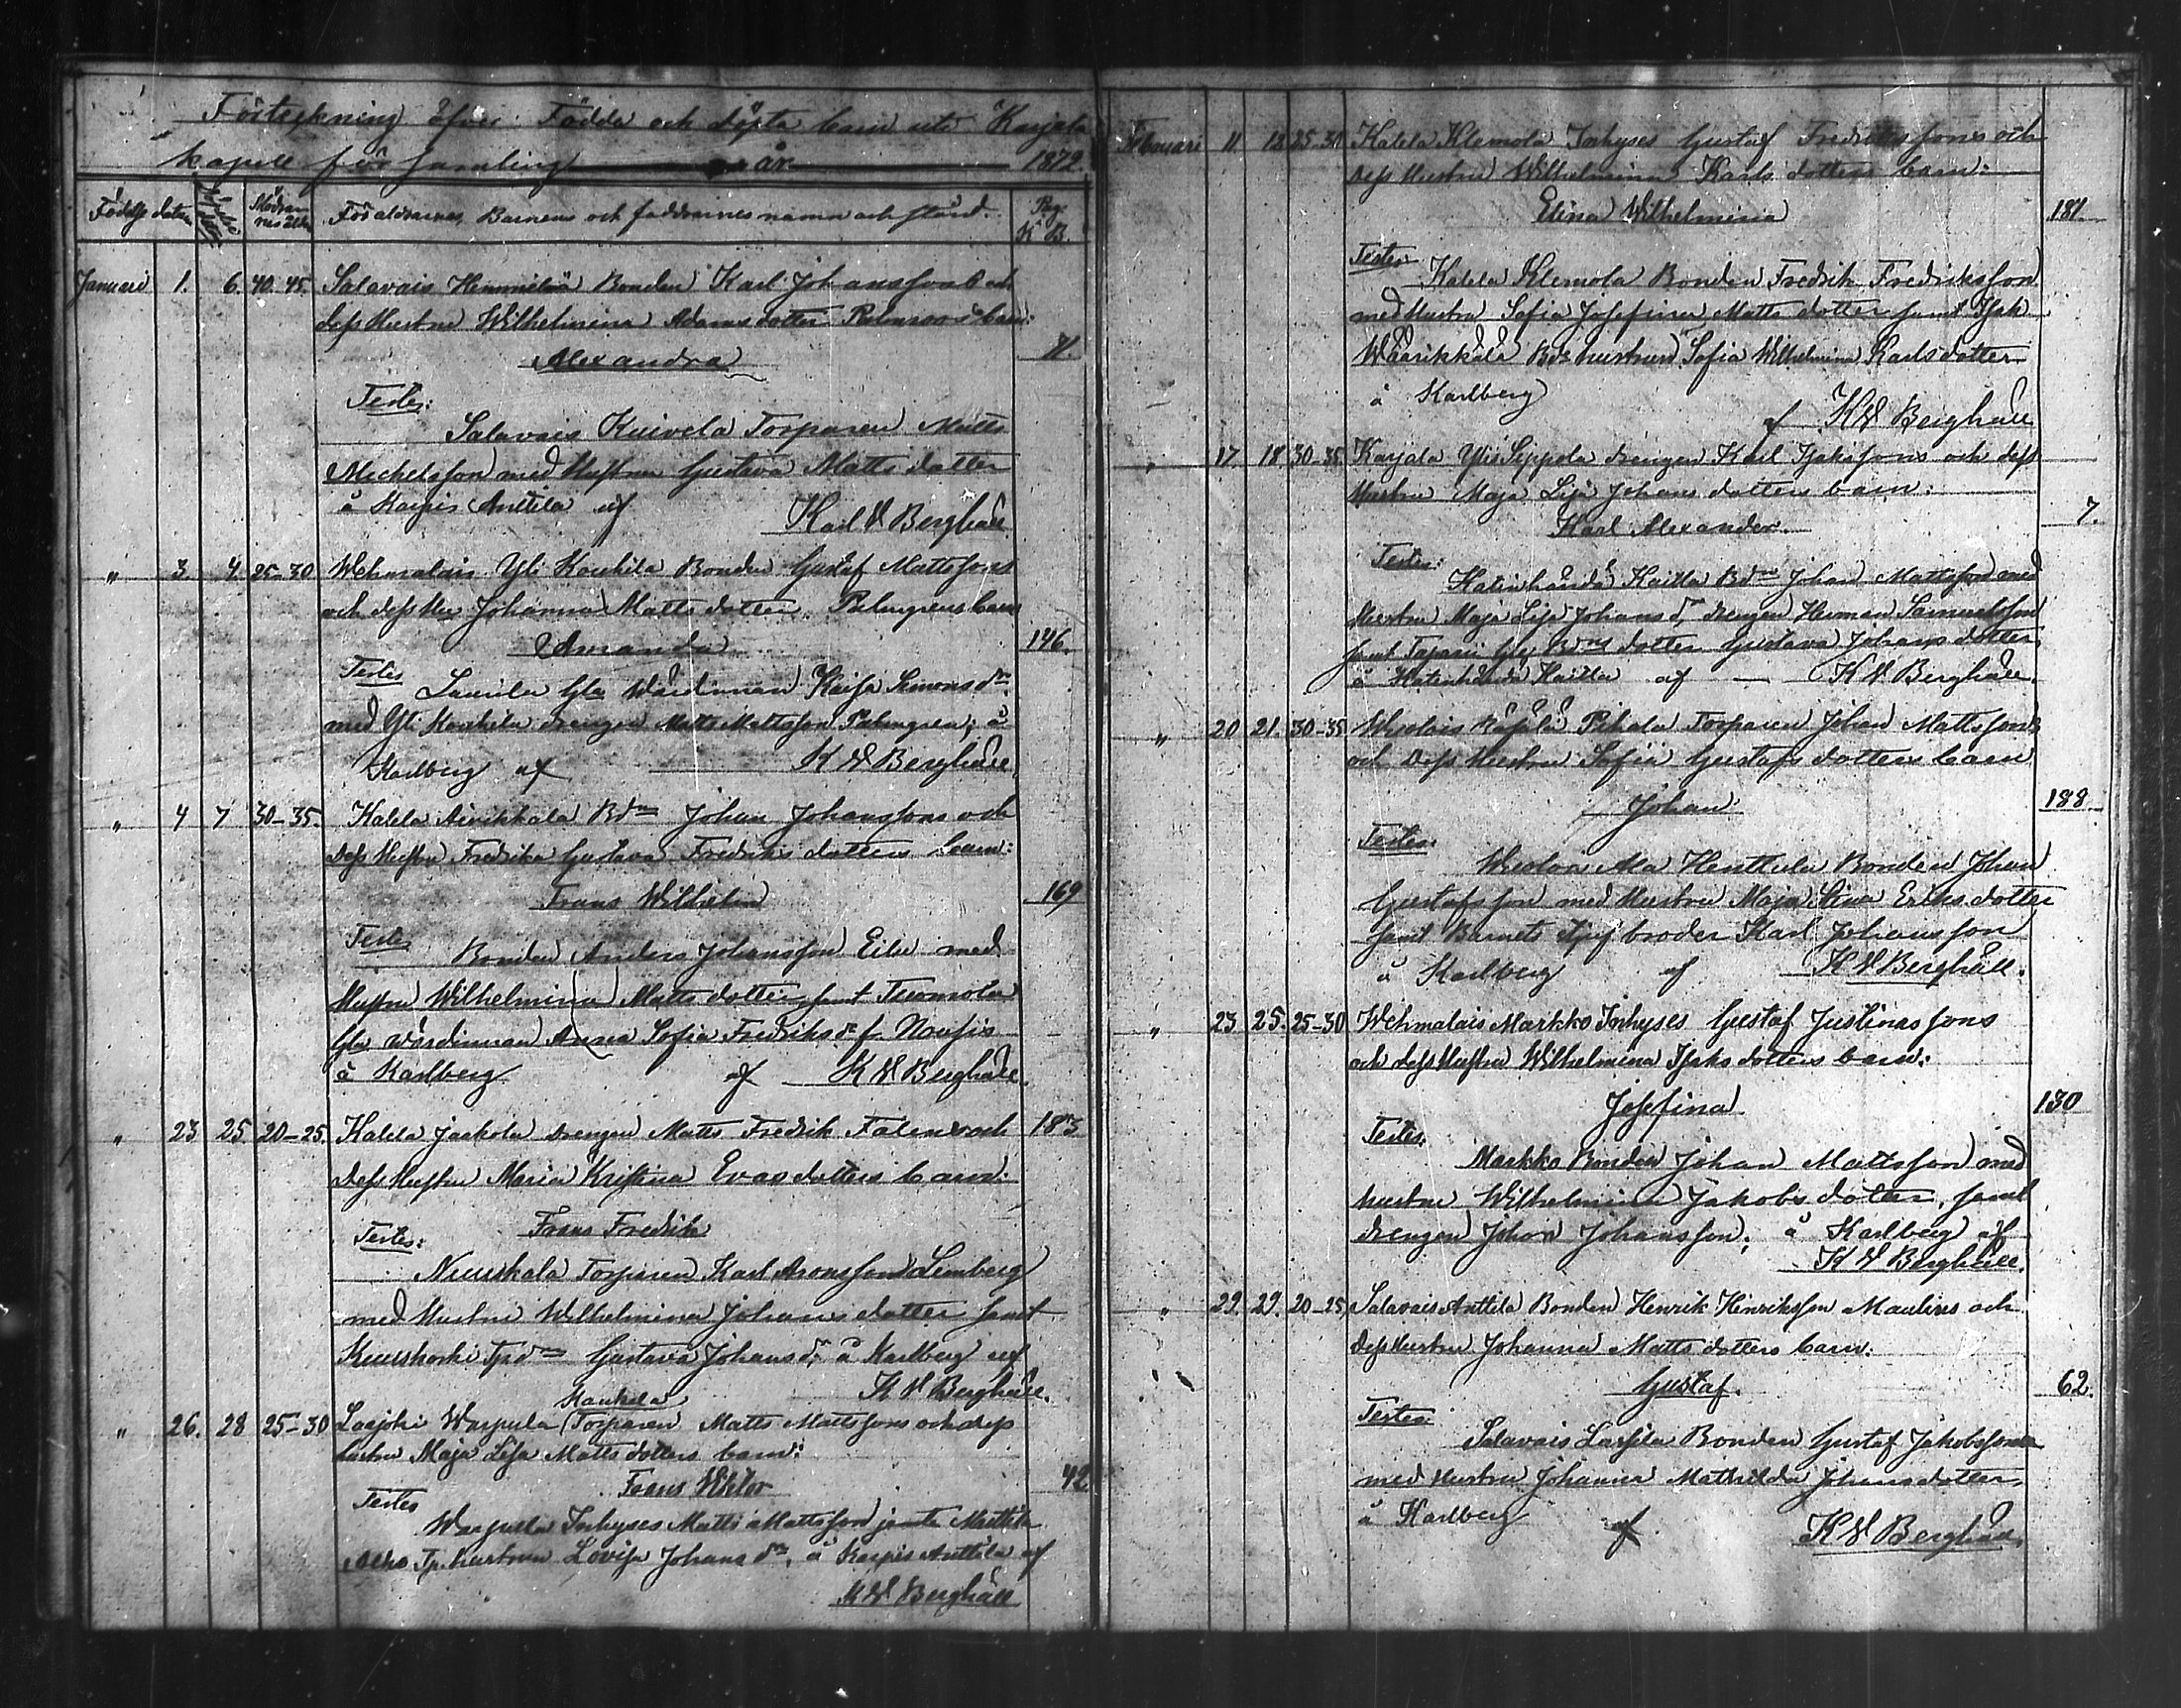 Förteckning öfver Födda och döpta barn uti Karjala
kapell församling år 1872.
Födelse datum
Mödrarnes ålder
Föräldrarnes, Barnens och faddrarnes namn och stånd.
Pag. K. B.
Januari 1. 6. 40-45. Salavais Hemmilä Bonden Karl Johansson och
dess Hustru Wilhelmina Adams dotter Palmroos barn:
Alexandra
Testes:
Salavais Kuivela Torparen Matts
Michelsson med Hustru Gustava Matts dotter
å Karjis Anttila af Karl W Berghäll
" 3. 4 25-30 Wehmalais Yli Koukila Bonden Gustaf Mattssons
och dess Hu Johanna Matts dotter Palmgrens barn
Amanda 146.
Testes Laurila Gla Wärdinnan Kaisa Simons dr
med Yli Koukila drengen Matts Mattsson Palmgren; å
Karlberg af K W Berghäll
" 4 7 30-35. Kalela Airikkala Bdn Johan Johanssons och
dess Hustru Fredrika Gustava Fredriks dotters barn:
Frans Wilhelm 169
Testes Bonden Anders Johansson Eile med
Hustru Wilhelmina Matts dotter samt Tuomola
Gla wärdinnan Anna Sofia Fredriks dr fr. Nousis
å Karlberg af K W Berghäll.
" 23 25 20-25. Kalela Jaakola drengen Matts Fredrik Falens och 183
dess Hustru Maria Kristina Evas dotters barn:
Frans Fredrik
Testes:
Nuuskala Torparen Karl Aronsson Lemberg
med Hustru Wilhelmina Johans dotter samt
Kuuskoski Gustava Johans dr, å Karlberg af
K W Berghäll.
Haukela
" 26. 28 25-30 Laajoki Warpula Torparen Matts Mattssons och dess
hustru Maja Lisa Matts dotters barn:
Frans Viktor 42
Testes
Warpula Inhyses Matts Mattsson jemte Mattila
Tp. hustrun Lovisa Johans dr, å Karjis Anttila af
K W Berghäll
Februari 11. 12 25-30 Kalela Klemola Inhyses Gustaf Fredrikssons och
dess Hustru Wilhelmina Karls dotters barn:
Elina Wilhelmina 181
Testes
Kalela Klemola Bonden Fredrik Fredriksson
med Hustru Sofia Josefina Matts dotter samt
Wäärikkälä Bds hustrun Sofia Wilhelmina Karlsdotter
å Karlberg
af K W Berghäll
" 17. 18 30-35 Karjala Ylis Seppola drengen Karl Isakssons och dess
Hustru Maja Lisa Johans dotters barn:
Karl Alexander 7.
Testes:
Hatinhändä Kaitla Bdn Johan Mattsson med
Hustru Maja Lisa Johans dr, drengen Herman Samuelsson
samt Tapani Bdns dotter Gustava Johans dotter
å Hatinhändä Kaitla af K W Berghäll.
" 20 21. 30-35 Pihala Torparen Johan Mattssons
och dess Hustru Sofia Gustafs dotters barn
Johan 188
Testes:
Ala Henttula Bonden Johan
Gustafsson med Hustru Maja Stina Eriks dotter
samt Barnets broder Karl Johansson
å Karlberg af K W Berghäll.
" 23 25. 25-30 Wehmalais Markko Inhyses Gustaf Justinassons
och dess Hustru Wilhelmina Isaks dotters barn:
Josefina 130
Testes:
Markko Bonden Johan Mattsson med
hustru Wilhelmina Jakobs dotter, samt
drengen Johan Johansson; å Karlberg af
K W Berghäll.
" 29. 29. 20-25, Salavais Anttila Bonden Henrik Henriksson Maulins och
dess Hustru Johanna Matts dotters barn.
Gustaf. 62.
Testes:
Salavais Lassila Bonden Gustaf Jakobsson
med Hustru Johanna Mathilda Johans dotter,
å Karlberg af K W Berghäll.